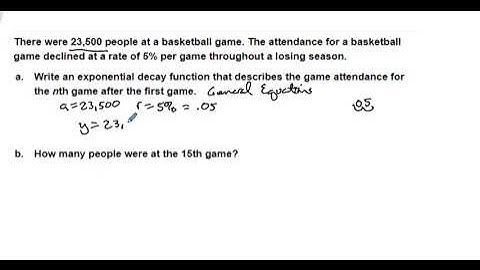 There were 23,500 people at a basketball game. The attendance for a basketball
game declined at a rate of 5% per game throughout a losing season.
a. Write an exponential decay function that describes the game attendance for
the nth game after the first game. General Equations
a=23,500 r=5% = .05 .05
y=23,
b. How many people were at the 15th game?